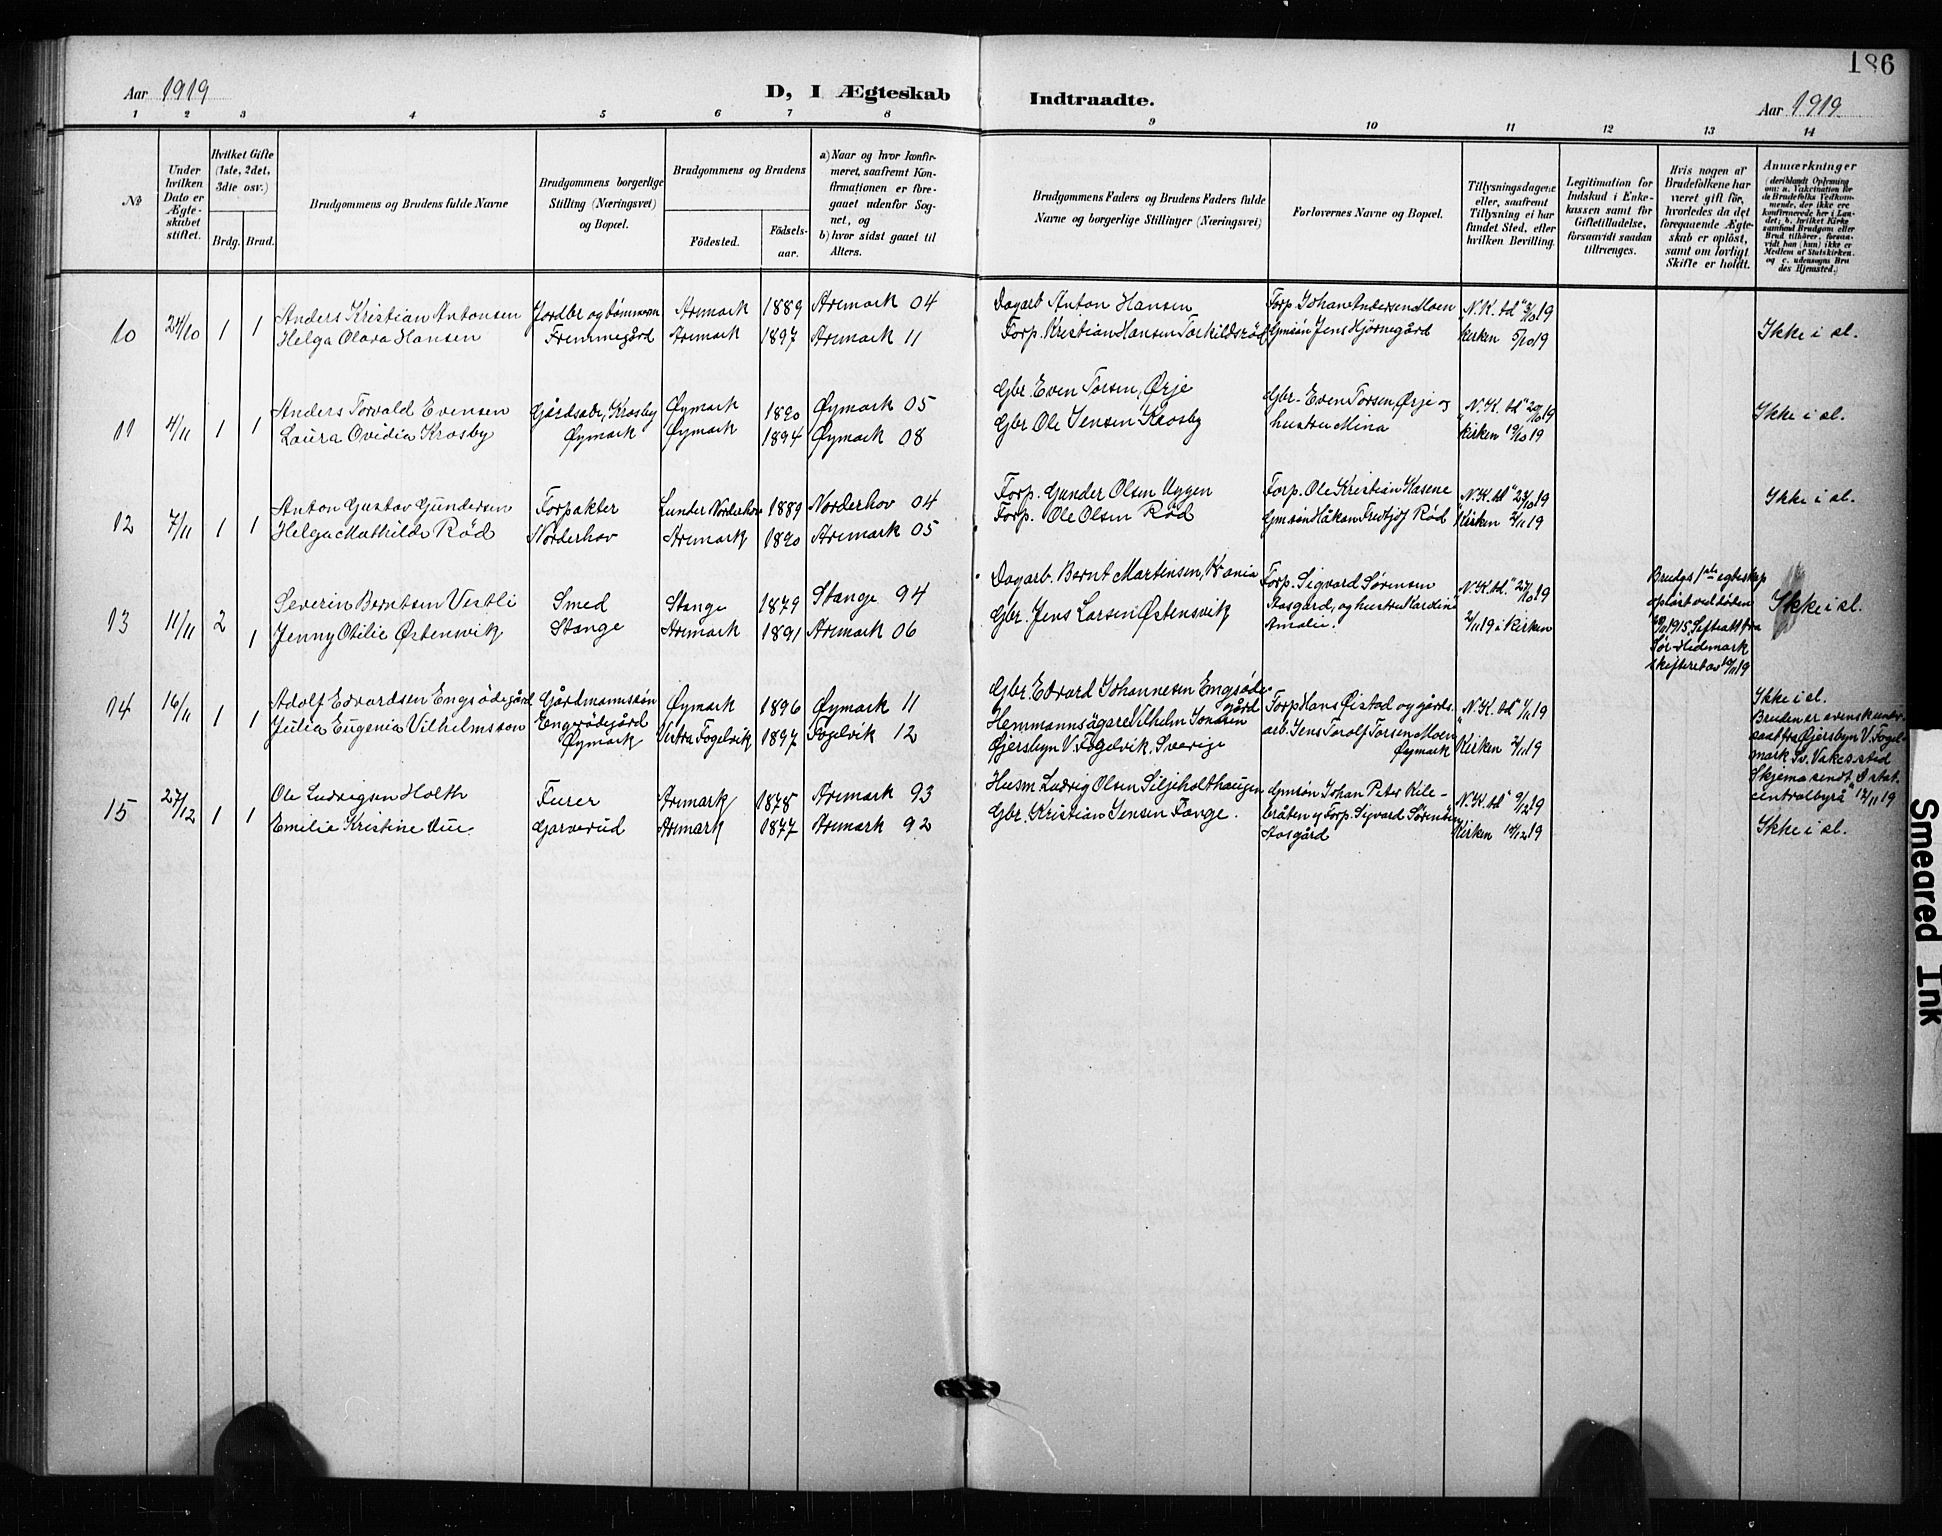 186
Aar 1919
D, I Ægteskab Indtraadte.
Aar 1919
1 2 3 4 5 6 7 8 9 10 11 12 13 14
No
Under hvilken Dato er Ægteskabet stiftet.
Hvilket Gifte (1ste, 2det, 3die osv.)
Brdg. Brud.
Brudgommens og Brudens fulde Navne
Brudgommens borgerlige Stilling (Næringsvei) og Bopæl.
Brudgommens og Brudens
Födested.
Födselsaar.
a) Naar og hvor konfirmeret, saafremt Konfirmationen er foregaaet udenfor Sognet, og
b) hvor sidst gaaet til Alters.
Brudgommens Faders og Brudens Faders fulde Navne og borgerlige Stillinger (Næringsvei)
Forlovernes Navne og Bopæl.
Tillysningsdagene eller, saafremt Tillysning ei har fundet Sted, efter hvilken Bevilling.
Legitimation for Indskud i Enkekassen samt for Giftetilladelse, forsaavidt saadan tiltrænges.
Hvis nogen af Brudefolkene har været gift för, hvorledes da det foregaaende Ægteskab er oplöst, samt om lovligt Skifte er holdt.
Anmærkninger
(deriblandt Oplysning om: a. Vakcination for de Brudefolks Vedkommende, der ikke ere konfirmerede her i Landet; b. hvilket Kirkesamfund Brudgom eller Brud tilhörer, forsaavidt han (hun) ikke er Medlem af Statskirken, og c. udensogns Brudes Hjemsted.)
10 24/10 1 1
Anders Kristian Antonsen Jordbr og tömmerm Aremark 1889 Aremark 04 Dagarb Anton Hansen Forp Johan Andersen Moen "N.K. bd" 19
Helga Olava Hansen Fremmegård Aremark 1897 Aremark 11 Forp. Kristian Hansen Torkildsröd Gmsön Jens Hjörnegård Kirken 5/10 19 Ikke i sl.
11 4/11 1 1
Anders Torvald Evensen Gårdsabr, Krosby Øymark 1890 Øymark 05 Gbr. Even Torsen, Ørje Gbr. Even Torsen, Ørje og "N.K. bd" 20/10 19 Ikke i sl.
Laura Ovidia Krosby Øymark Øymark 1894 Øymark 08 Gbr Ole Jensen Krosby hustru Mina Kirken 19/10 19
12 7/11 1 1
Anton Gustav Gundersen Forpakter Lunder Norderhov 1889 Norderhov 04 Forp. Gunder Olsen Uggen Forp. Ole Kristian Kasene "N.K. bd" 19 Ikke i sl.
Helga Mathilde Rød Norderhov Aremark 1890 Aremark 05 Forp. Ole Olsen Rød Gmsön Håkon Fredtjof Rød Kirken 2/11 19
13 11/11 2 1
Severin Berntsen Vestli Smed Stange 1879 Stange 94 Dagarb. Bernt Martinsen, Kr ania Forp. Sigvard Sörensen "N.K. bd." 27/10 19
Jenny Otilie Østensvik Stange Aremark 1891 Aremark 06 Gbr. Jens Larsen Østensvik Aasgård, og hustru Kardine Amalie. 2/11 19 i Kirken
Brudgs 1ste egteskap oplöst ved döden 1915, Skifteatt fra Sör-Hedmark skifteret av 19
Ikke i sl.
14 16/11 1 1
Adolf Edvardsen Engsödegård Gårdmannssön Øymark 1896 Øymark 11 Gbr. Edvard Johannesen Engsödegård Forp Hans Øistad og gårds- "N.K. bd" 19
Julia Eugenia Vilhelmsson Engsödegård Øymark Vestra Fogelvik 1897 Fogelvik 12 Hemmannsägare Vilhelm Jonasen Gjersbyn V. Fogelvik, Sverige arb. Jens Torolf Torsen Moen Øymark Kirken 2/11 19
Ikke i sl.
Bruden er svensk undersaat fra Gjersbyn V. Fogelmark Sv. Skjema sendt D stat. centralbyrå 17/11 19
15 27/12 1 1
Ole Ludvigsen Holth Furer Aremark 1878 Aremark 93 Husm Ludvig Olsen Siljeholthaugen Gmsön Johan Peter Kile- "N.K. bd" 9/12 19
Emilie Kristine Aue Garverud Aremark 1877 Aremark 92 Gbr. Kristian Jensen Fange. bråten og Forp. Sigvard Sörensen Aasgård Kirken 14/12 19 Ikke i sl.
Smeared Ink